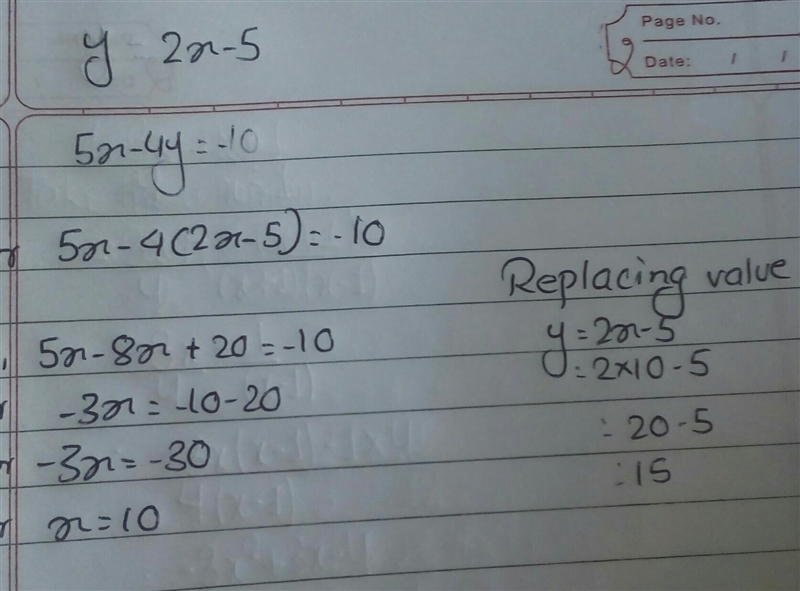 Page No.
Date: / /
y 2x-5
5x-4y=-10
5x-4(2x-5)=-10
5x-8x+20=-10
-3x=-10-20
-3x=-30
x=10
Replacing value
y=2x-5
=2×10-5
=20-5
=15